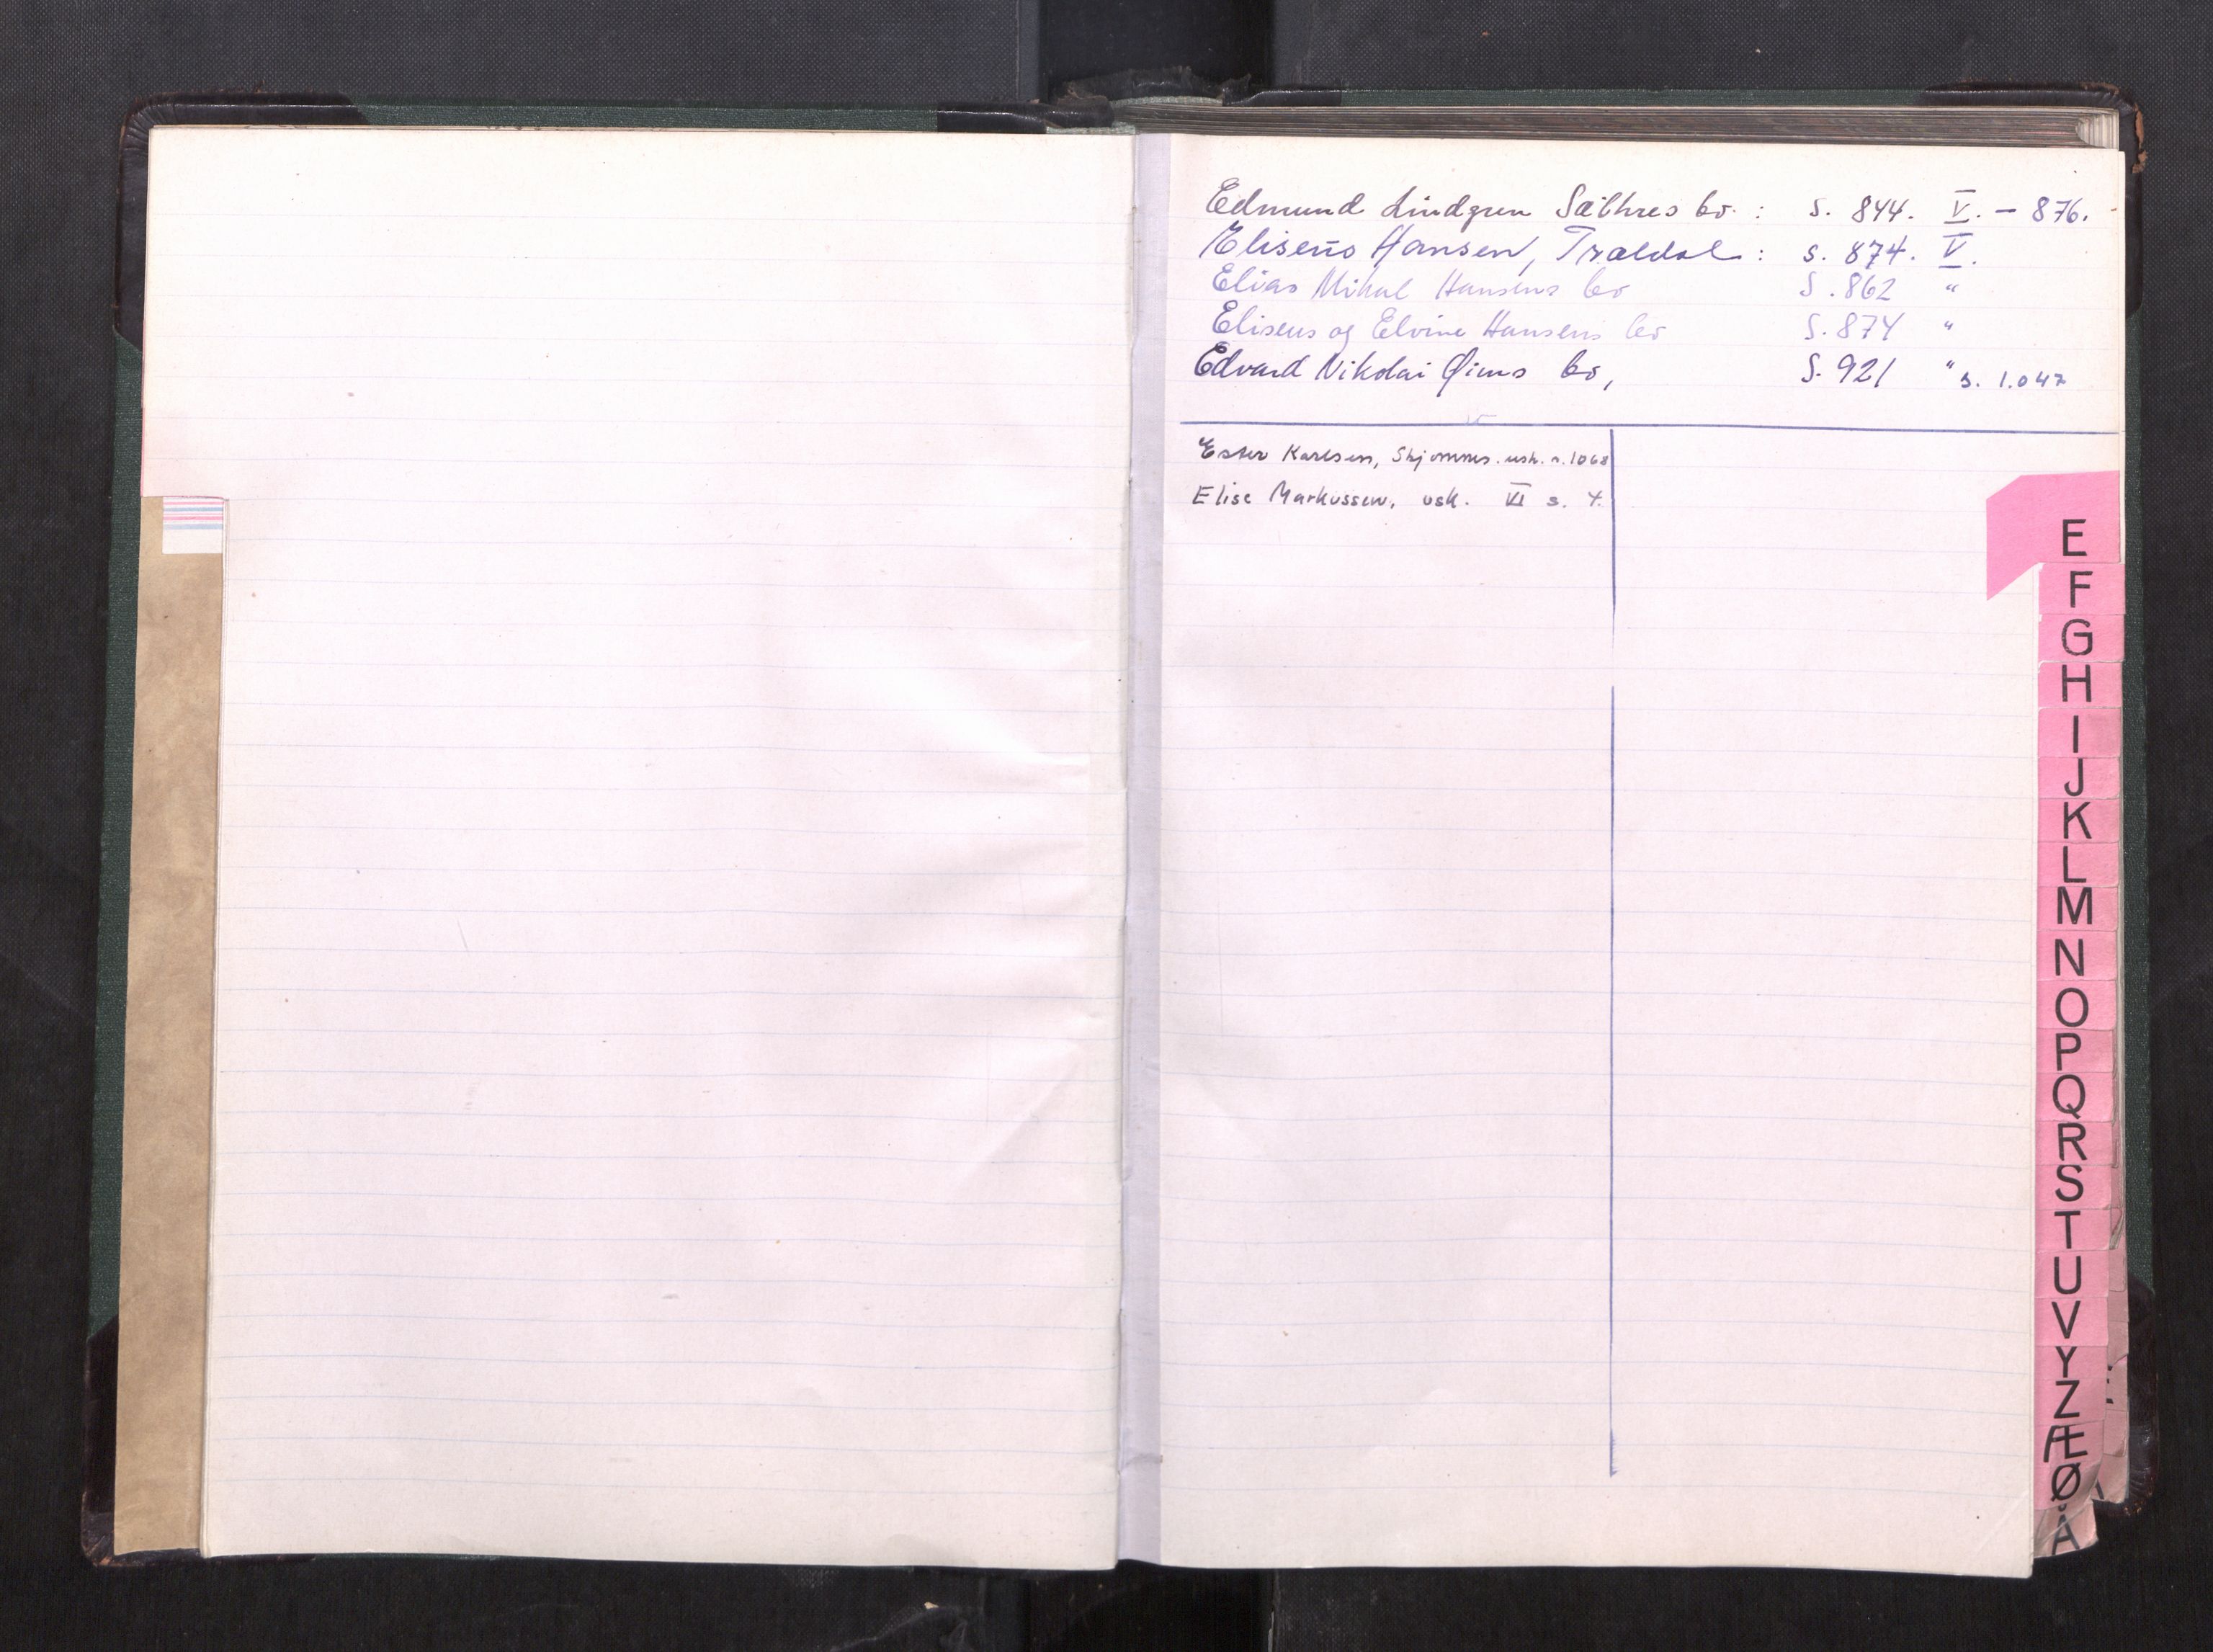 Edmund Lindgren Sæthres bo. : S. 844. V. – 876.
Eliseus Hansen, Traldal : s. 874. V.
Elias Mikal Hansens bo S. 862 "
Eliseus og Elvine Hansens bo S. 874 "
Edvard Nikolai Øiens bo, S. 921 " s. 1.047
Ester Karlsen, Skjommes. usk. s. 1068
Elise Markussen, usk. VI s. 4.
E
F
G
H
I
J
K
L
M
N
O
P
Q
R
S
T
U
V
Y
Z
Æ
Ø
Å